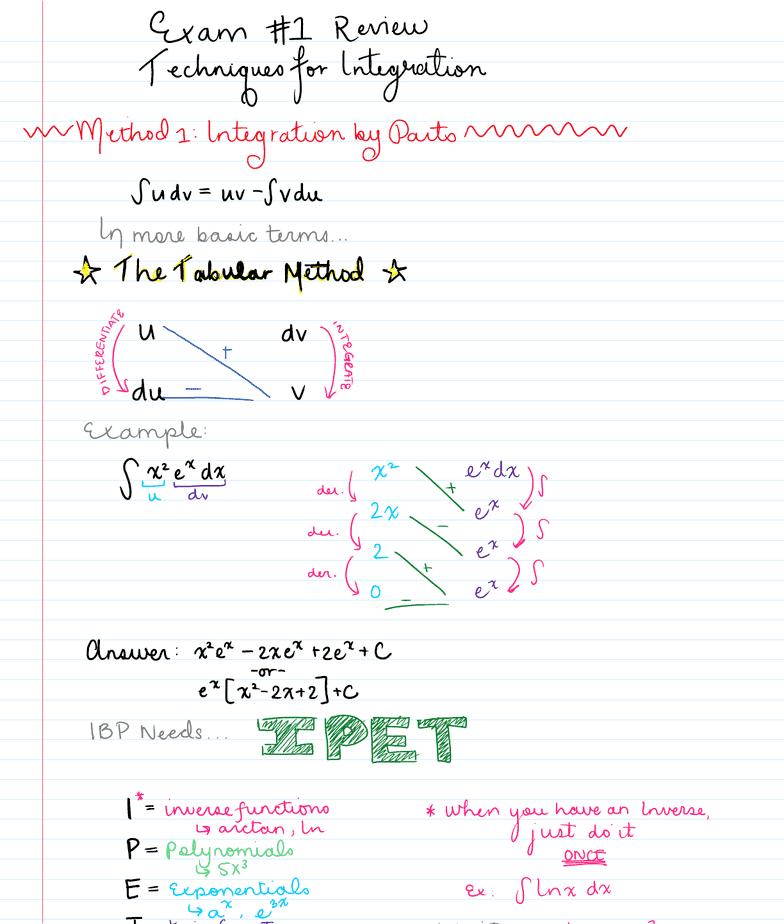 Exam #1 Review
Techniques for Integration
Method 1: Integration by Parts
∫u dv = uv - ∫v du
In more basic terms...
☆ The Tabular Method ☆
DIFFERENTIATE
u
+
dv
INTEGRATE
du
−
v
Example:
∫ x² eˣ dx
u dv
x² eˣdx
der. + ∫
2x eˣ
der. − ∫
2 eˣ
der. + ∫
0 eˣ
−
Answer: x²eˣ − 2xeˣ + 2eˣ + C
-or-
eˣ[x²-2x+2]+C
IBP Needs... IPET
I* = inverse functions
↳ arctan, ln
P = Polynomials
↳ 5x³
E = Exponentials
↳ aˣ, e³ˣ
* when you have an Inverse,
just do it
ONCE
Ex. ∫ ln x dx